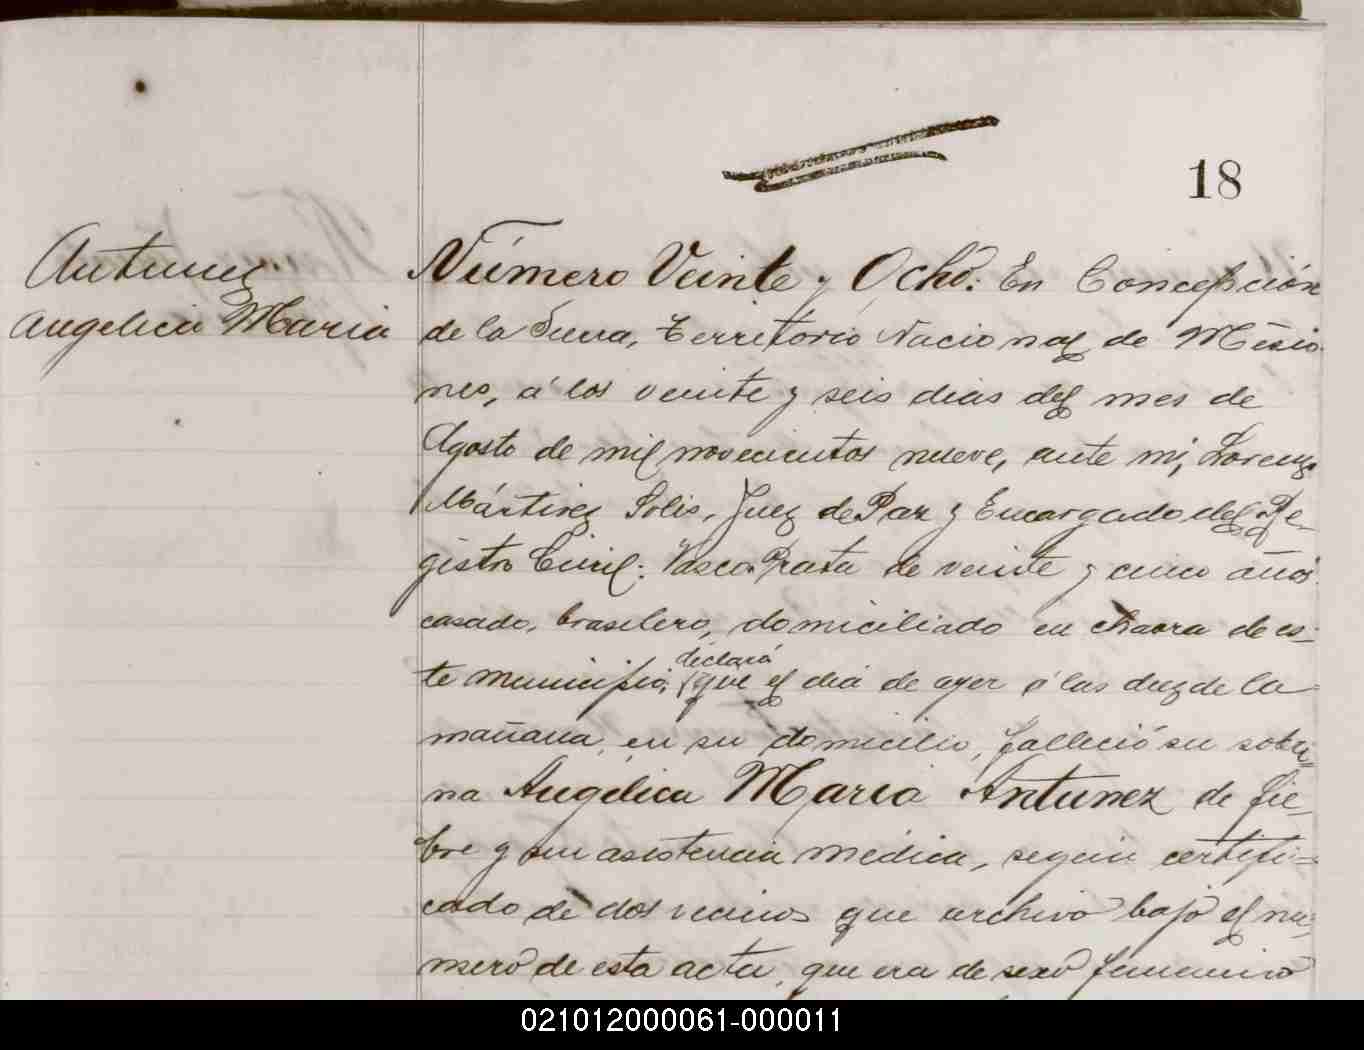 18
Antunez
Angelica Maria
Número Veinte y Ocho. En Concepción
de la Sierra, Territorio Nacional de Misio-
nes, á los veinte y seis dias del mes de
Agosto de mil novecientos nueve, ante mi, Lorenzo
Mártinez Solis, Juez de Paz y Encargado del Re-
gistro Civil: Vasco Prata de veinte y cinco años
casado, brasilero, domiciliado en chacra de es-
te municipio, declaró que el dia de ayer á las diez de la
mañana, en su domicilio, falleció su sobri-
na Angélica Maria Antunez de fie-
bre y sin asistencia médica, seguin certifi-
cado de dos vecinos que archivo bajo el nu-
mero de esta acta, que era de sexo femenino
021012000061-000011